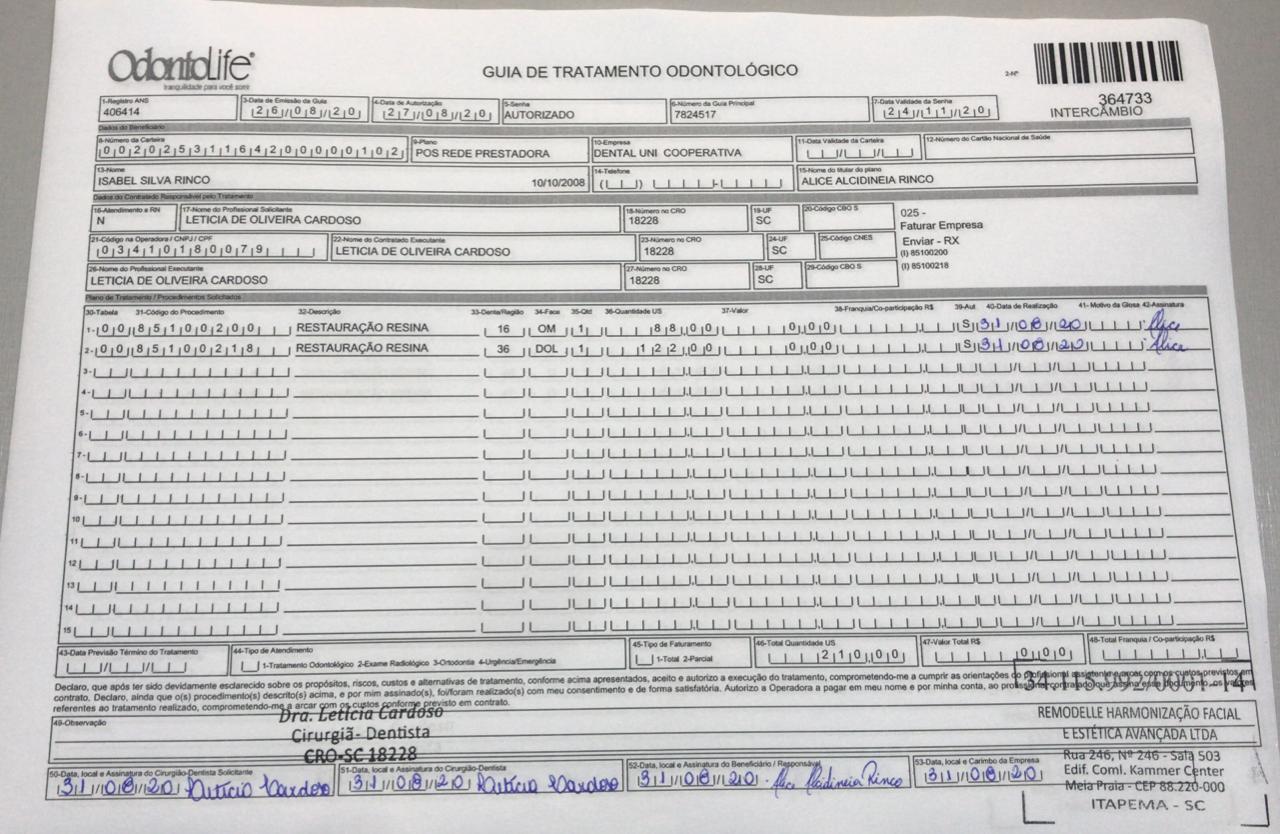 OdontoLife®
tranquilidade para você sorrir
GUIA DE TRATAMENTO ODONTOLÓGICO
2-Nº
364733
INTERCÂMBIO
1-Registro ANS 3-Data de Emissão da Guia 4-Data de Autorização 5-Senha 6-Número da Guia Principal 7-Data Validade da Senha
406414 26/08/20 27/08/20 AUTORIZADO 7824517 24/11/20
Dados do Beneficiário
8-Número da Carteira 9-Plano 10-Empresa 11-Data Validade da Carteira 12-Número do Cartão Nacional de Saúde
00202531164200000102 POS REDE PRESTADORA DENTAL UNI COOPERATIVA
13-Nome 14-Telefone 15-Nome do titular do plano
ISABEL SILVA RINCO 10/10/2008 ALICE ALCIDINEIA RINCO
Dados do Contratado Responsável pelo Tratamento
16-Atendimento a RN 17-Nome do Profissional Solicitante 18-Número no CRO 19-UF 20-Código CBO S
N LETICIA DE OLIVEIRA CARDOSO 18228 SC
025 -
Faturar Empresa
Enviar - RX
(I) 85100200
(I) 85100218
21-Código na Operadora / CNPJ / CPF 22-Nome do Contratado Executante 23-Número no CRO 24-UF 25-Código CNES
03410180079 LETICIA DE OLIVEIRA CARDOSO 18228 SC
26-Nome do Profissional Executante 27-Número no CRO 28-UF 29-Código CBO S
LETICIA DE OLIVEIRA CARDOSO 18228 SC
Plano de Tratamento / Procedimentos Solicitados
30-Tabela 31-Código do Procedimento 32-Descrição 33-Dente/Região 34-Face 35-Qtd 36-Quantidade US 37-Valor 38-Franquia/Co-participação R$ 39-Aut 40-Data de Realização 41- Motivo da Glosa 42-Assinatura
1- 00 85100200 RESTAURAÇÃO RESINA 16 OM 1 88,00 0,00 S 31/08/20 Alice
2- 00 85100218 RESTAURAÇÃO RESINA 36 DOL 1 122,00 0,00 S 31/08/20 Alice
3-
4-
5-
6-
7-
8-
9-
10
11
12
13
14
15
43-Data Previsão Término do Tratamento 44-Tipo de Atendimento 45-Tipo de Faturamento 46-Total Quantidade US 47-Valor Total R$ 48-Total Franquia / Co-participação R$
1-Tratamento Odontológico 2-Exame Radiológico 3-Ortodontia 4-Urgência/Emergência 1-Total 2-Parcial 210,00 0,00
Declaro, que após ter sido devidamente esclarecido sobre os propósitos, riscos, custos e alternativas de tratamento, conforme acima apresentados, aceito e autorizo a execução do tratamento, comprometendo-me a cumprir as orientações do profissional assistente e arcar com os custos previstos em
contrato. Declaro, ainda que o(s) procedimento(s) descrito(s) acima, e por mim assinado(s), foi/foram realizado(s) com meu consentimento e de forma satisfatória. Autorizo a Operadora a pagar em meu nome e por minha conta, ao profissional
referentes ao tratamento realizado, comprometendo-me a arcar com os custos conforme previsto em contrato.
49-Observação
Dra. Letícia Cardoso
Cirurgiã- Dentista
CRO-SC 18228
REMODELLE HARMONIZAÇÃO FACIAL
E ESTÉTICA AVANÇADA LTDA
Rua 246, Nº 246 - Sala 503
Edif. Coml. Kammer Center
Meia Praia - CEP 88.220-000
ITAPEMA - SC
50-Data, local e Assinatura do Cirurgião-Dentista Solicitante 51-Data, local e Assinatura do Cirurgião-Dentista 52-Data, local e Assinatura do Beneficiário / Responsável 53-Data, local e Carimbo da Empresa
31/08/20 Letícia Cardoso 31/08/20 Letícia Cardoso 31/08/20 Alice Alcidineia Rinco 31/08/20